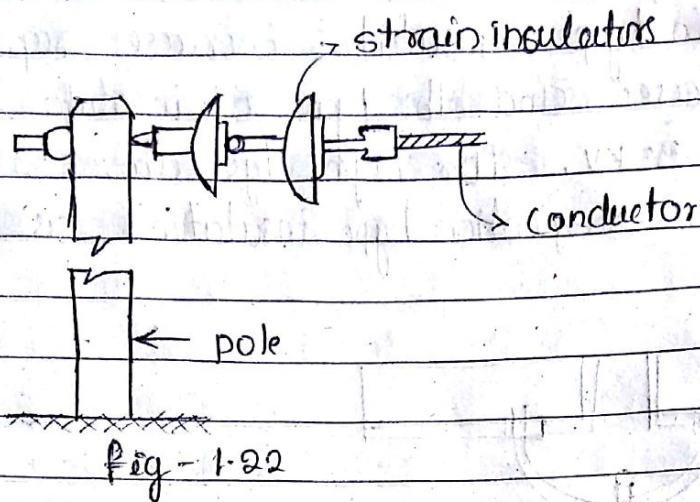 strain insulators
conductor
pole
fig - 1.22